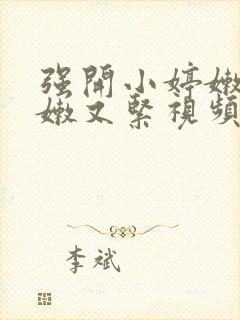 强開小婷嫩
嫩又緊視頻
李斌